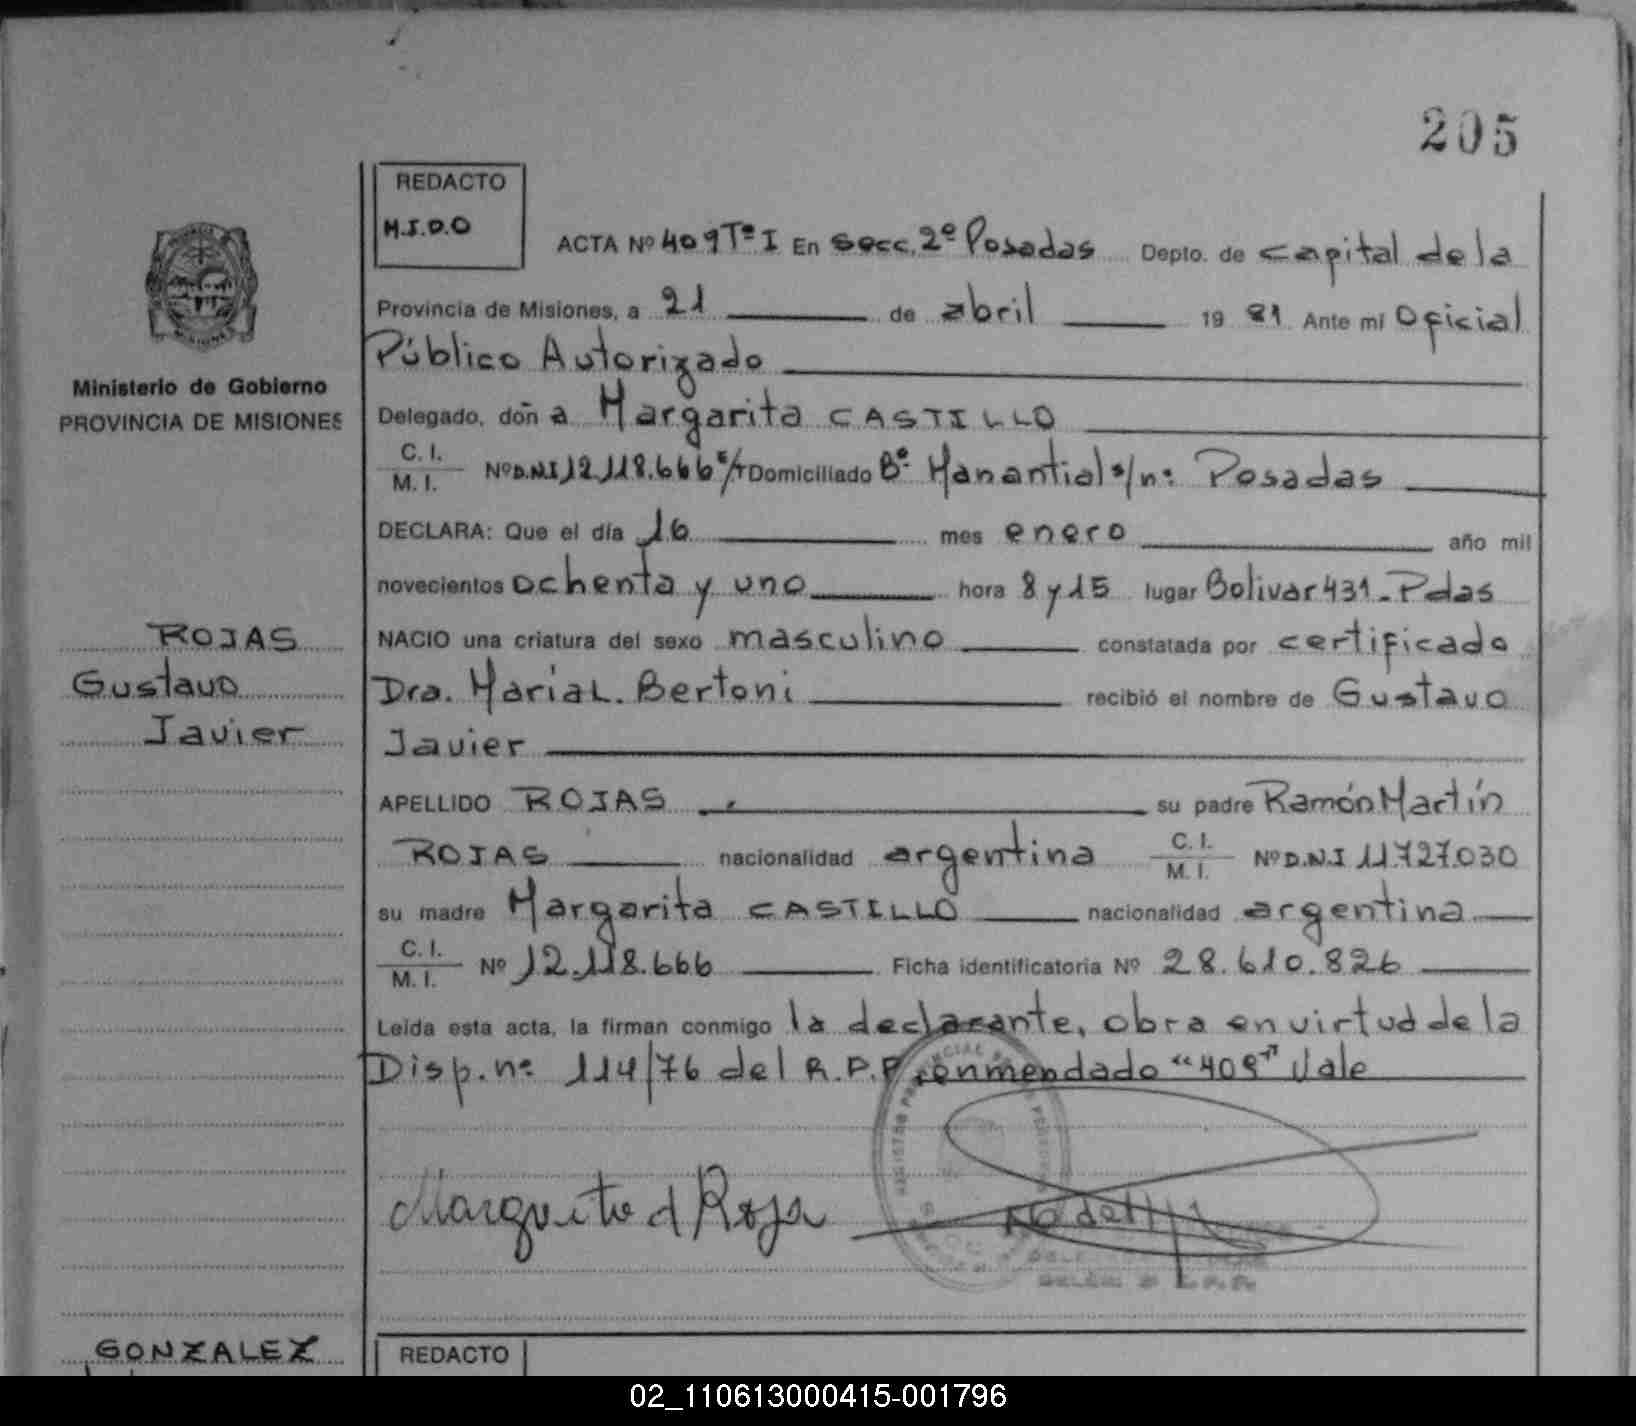 205
REDACTO
M.I.D.O
ACTA Nº 409 Tº I En Secc. 2º Posadas Depto. de Capital de la
Provincia de Misiones, a 21 de abril 19 81 Ante mí Oficial
Público Autorizado
Ministerio de Gobierno
PROVINCIA DE MISIONES
Delegado, doñ a Margarita CASTILLO
C. I.
M. I. Nº D.N.I 12.118.666 s/T Domiciliado Bº Manantial s/nº Posadas
DECLARA: Que el día 16 mes enero año mil
novecientos ochenta y uno hora 8 y 15 lugar Bolivar 431 - Pdas
ROJAS
Gustavo
Javier
NACIO una criatura del sexo masculino constatada por certificado
Dra. María L. Bertoni recibió el nombre de Gustavo
Javier
APELLIDO ROJAS su padre Ramón Martín
ROJAS nacionalidad argentina C. I. M. I. Nº D.N.I 11.727.030
su madre Margarita CASTILLO nacionalidad argentina
C. I.
M. I. Nº 12.118.666 Ficha identificatoria Nº 28.610.826
Leída esta acta, la firman conmigo la declarante, obra en virtud de la
Disp. nº 114/76 del R.P.P enmendado "409" Vale
GONZALEZ
REDACTO
02_110613000415-001796